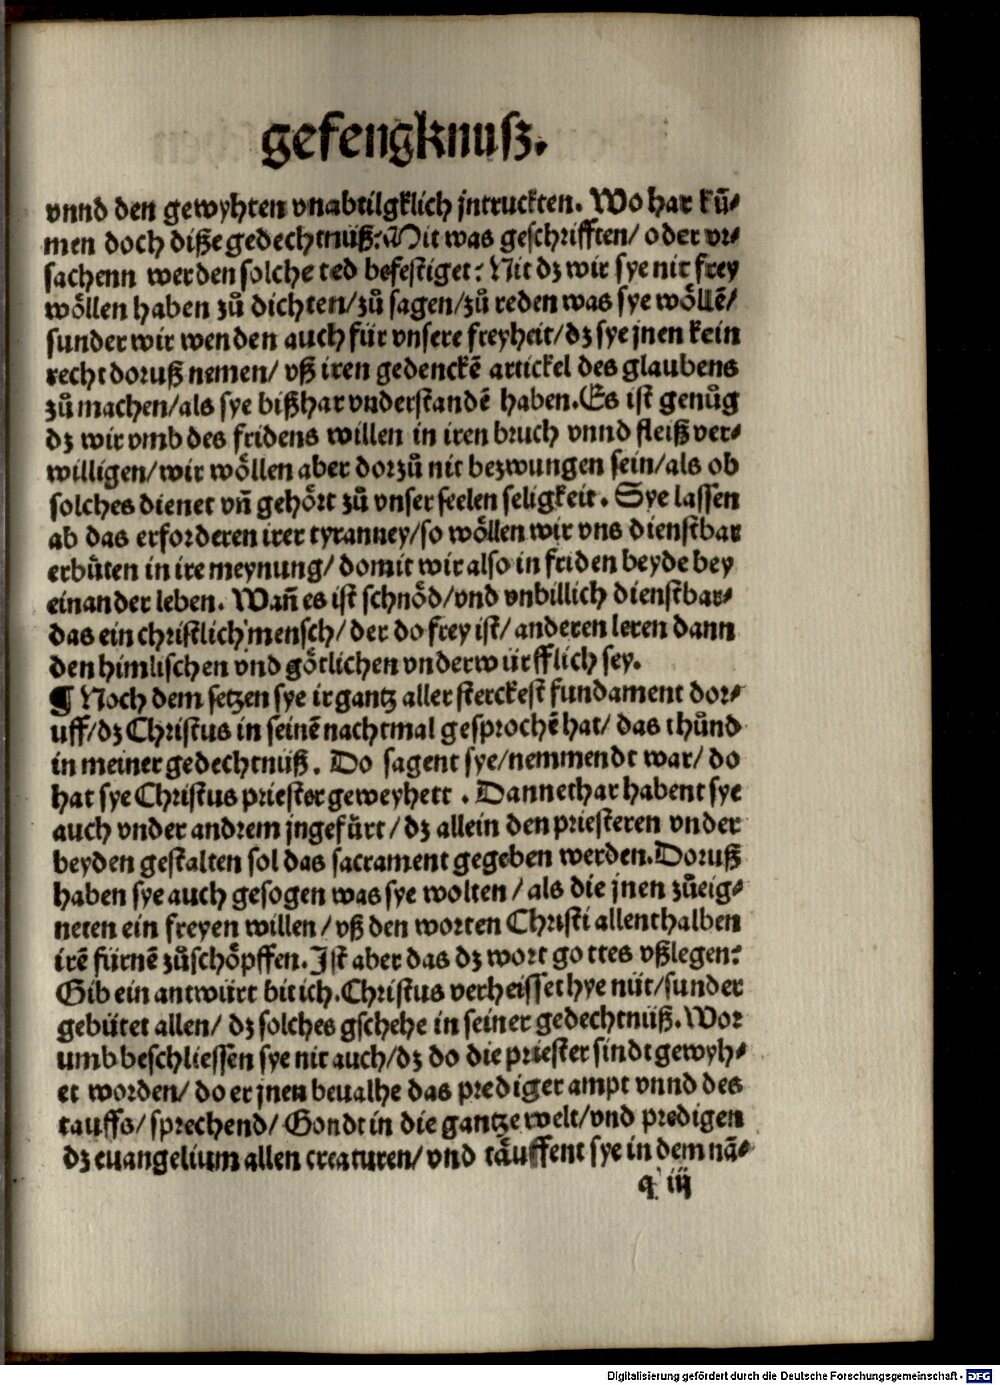 gefengknusz.
vnnd den gewyhten vnabtilgklich jntruckten. Wo har kū⸗
men doch diße gedechtnüß: Mit was geschrifften/ oder vr⸗
sachenn werden solche red befestiget: Nit dz wir sye nit frey
wöllen haben zů dichten/zů sagen/zů reden was sye wöllē/
sunder wir wenden auch für vnsere freyheit/dz sye jnen kein
recht doruß nemen/ vß iren gedenckē artickel des glaubens
zů machen/als sye bißhar vnderstandē haben. Es ist genůg
dz wir vmb des fridens willen in iren bruch vnnd fleiß ver⸗
willigen/wir wöllen aber dorzů nit bezwungen sein/als ob
solches dienet vn̄ gehört zů vnser seelen seligkeit. Sye lassen
ab das erforderen irer tyranney/so wöllen wir vns dienstbar
erbüten in ire meynung/ domit wir also in friden beyde bey
einander leben. Wan̄ es ist schnöd/vnd vnbillich dienstbar⸗
das ein christlich mensch/ der do frey ist/ anderen leren dann
den himlischen vnd götlichen vnderwürfflich sey.
¶ Noch dem setzen sye ir gantz aller sterckest fundament dor⸗
uff/dz Christus in seinē nachtmal gesprochē hat/ das thůnd
in meiner gedechtnüß. Do sagent sye/nemmendt war/ do
hat sye Christus priester geweyhett. Dannethar habent sye
auch vnder andrem jngefürt/ dz allein den priesteren vnder
beyden gestalten sol das sacrament gegeben werden. Doruß
haben sye auch gesogen was sye wolten/ als die jnen zůeig⸗
neten ein freyen willen/ vß den worten Christi allenthalben
irē fürnē zůschöpffen. Ist aber das dz wort gottes vßlegen:
Gib ein antwürt bit ich. Christus verheisset hye nüt/sunder
gebütet allen/ dz solches gschehe in seiner gedechtnüß. Wor
umb beschliessen sye nit auch/dz do die priester sindt gewyh⸗
et worden/ do er jnen beualhe das prediger ampt vnnd des
tauffs/ sprechend/ Gondt in die gantze welt/vnd predigen
dz euangelium allen creaturen/ vnd täuffent sye in dem nā⸗
q iij
Digitalisierung gefördert durch die Deutsche Forschungsgemeinschaft - DFG